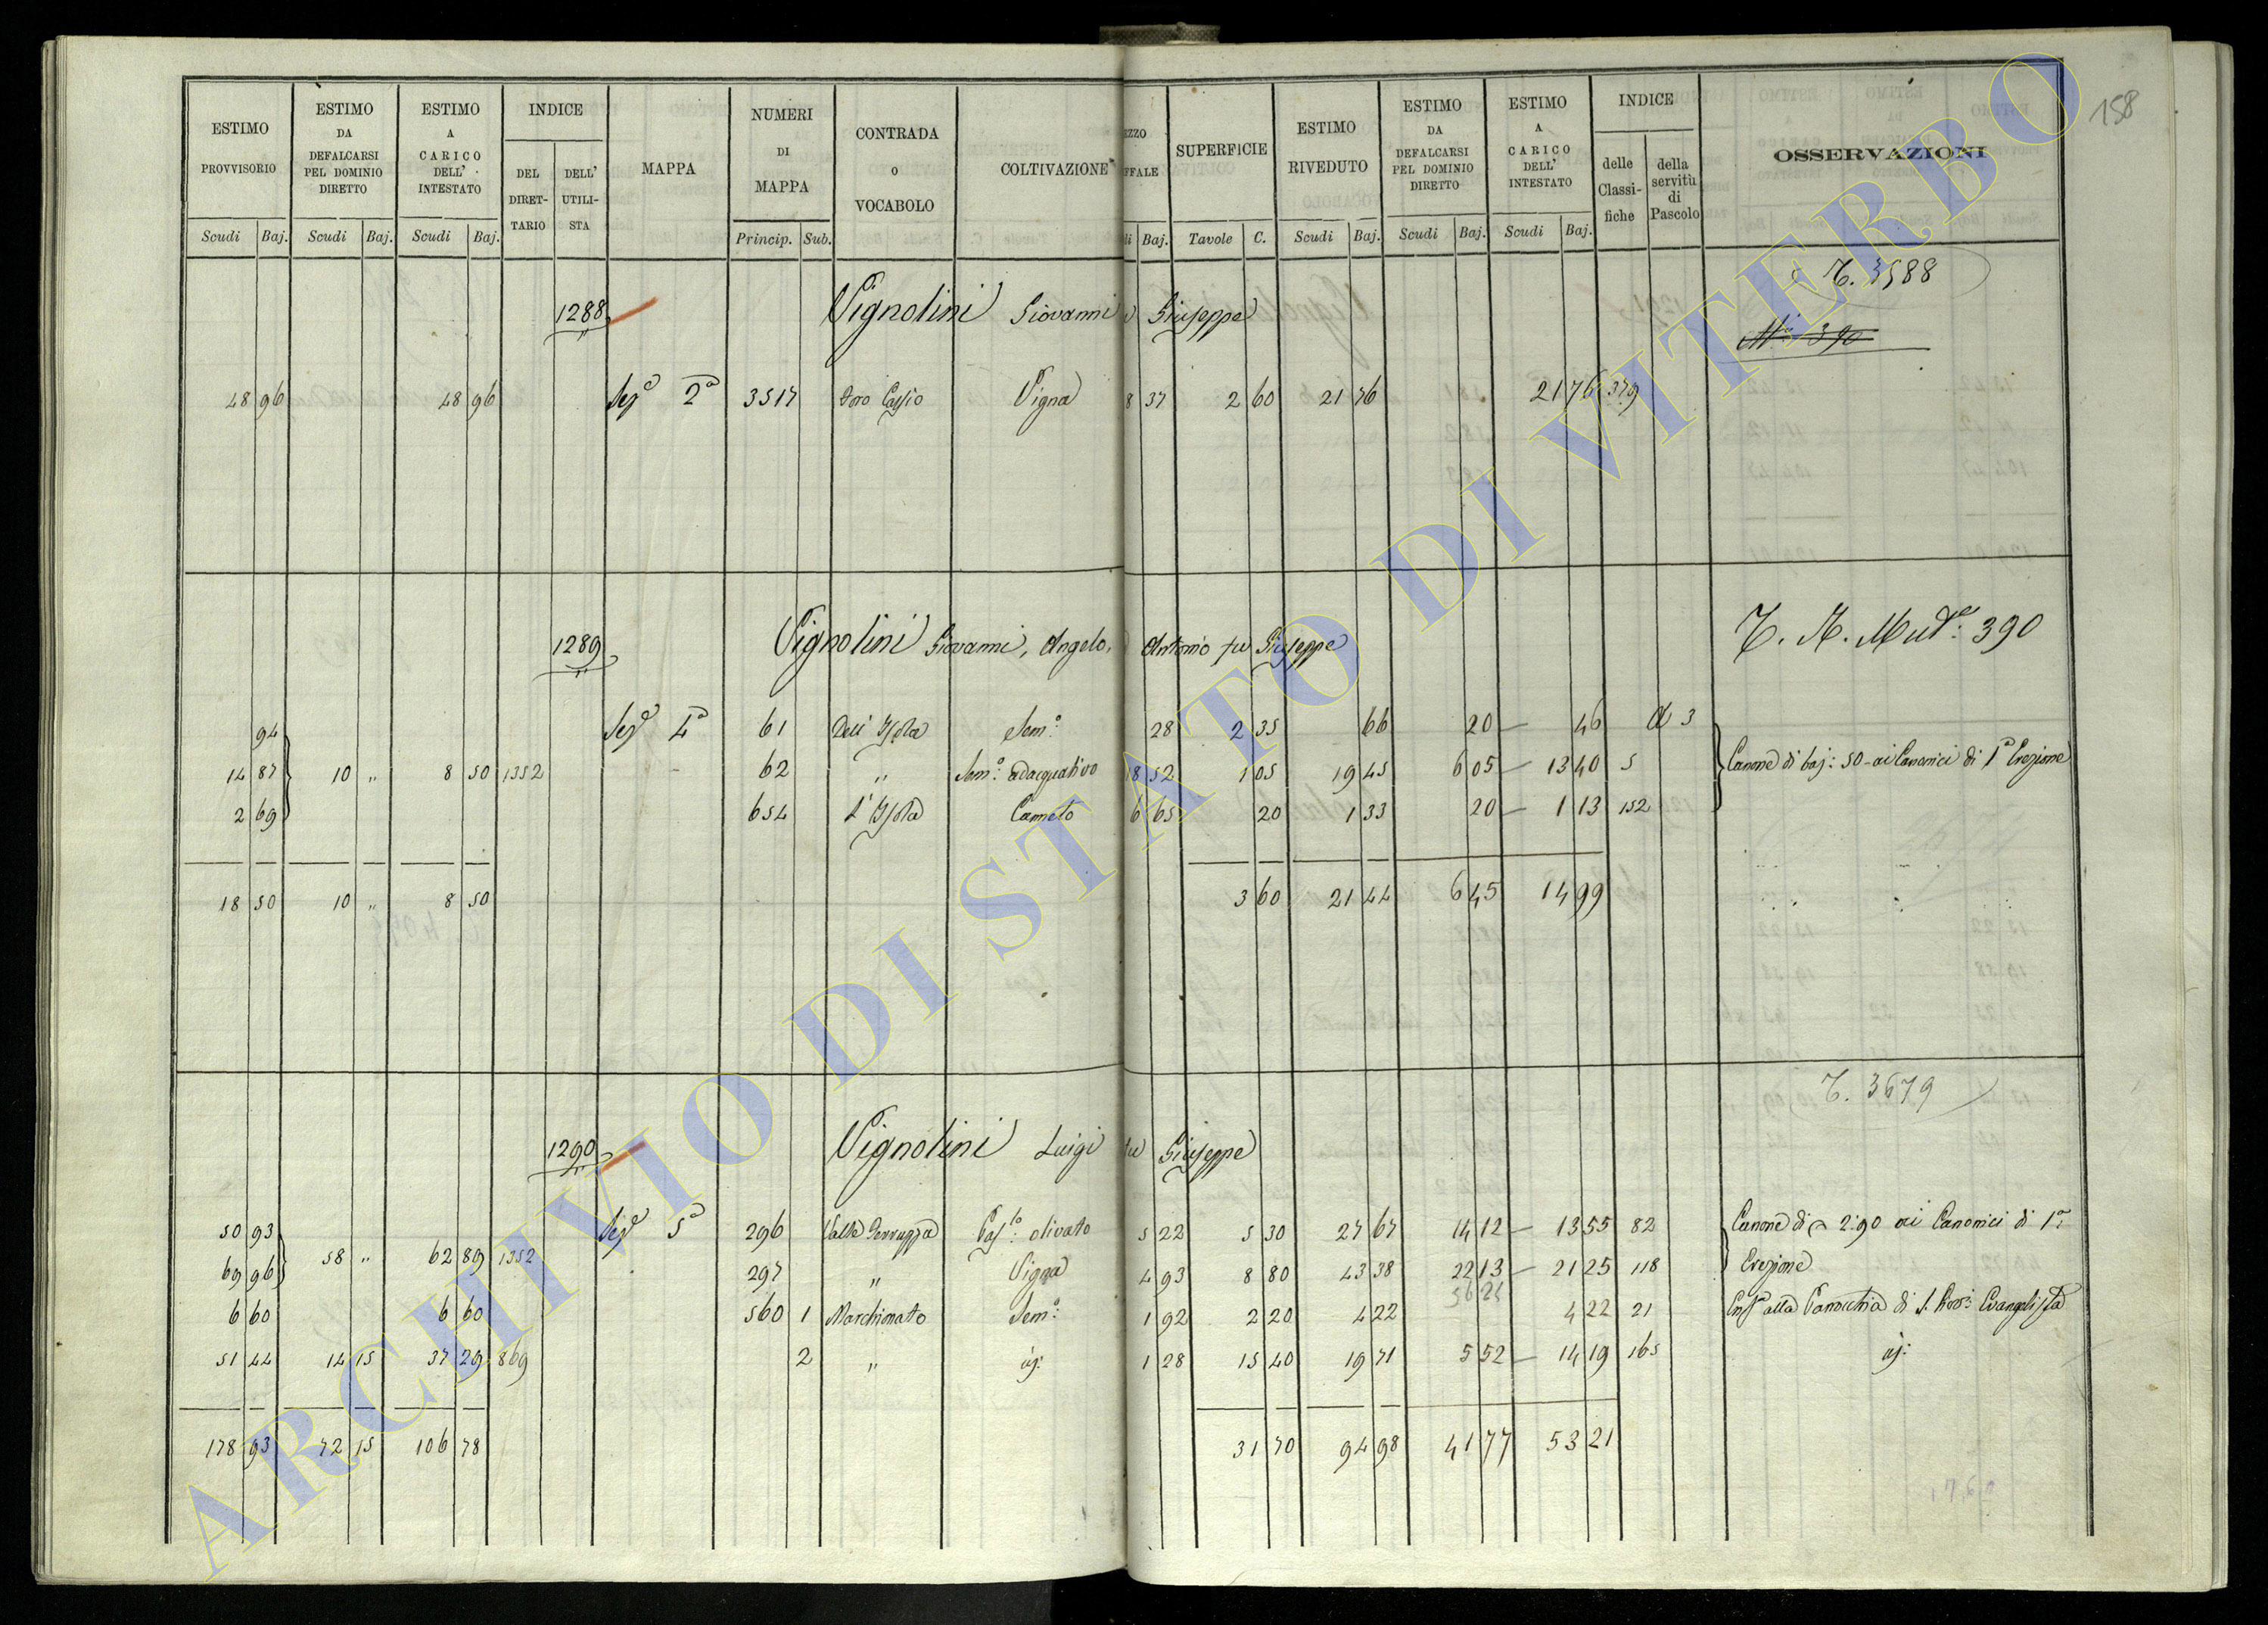 158
ESTIMO PROVVISORIO Scudi Baj.
ESTIMO DA DEFALCARSI PEL DOMINIO DIRETTO Scudi Baj.
ESTIMO A CARICO DELL' INTESTATO Scudi Baj.
INDICE DEL DIRETTARIO DELL' UTILISTA
MAPPA
NUMERI DI MAPPA Princip. Sub.
CONTRADA o VOCABOLO
COLTIVAZIONE
EZZO FFALE di Baj.
SUPERFICIE Tavole C.
ESTIMO RIVEDUTO Scudi Baj.
ESTIMO DA DEFALCARSI PEL DOMINIO DIRETTO Scudi Baj.
ESTIMO A CARICO DELL' INTESTATO Scudi Baj.
INDICE delle Classifiche della servitù di Pascolo
OSSERVAZIONI
T. 3588
1288 Vignolini Giovanni Giuseppe
390
48 96 48 96 Sez. 2a 3517 Vigna 8 37 2 60 21 76 21 76 379
1289 Vignolini Giovanni, Angelo, Antonio fu Giuseppe
390
94 Sez. 4a 61 Dell' Isola Sem.o 28 2 35 66 20 46 3
14 87 10 " 8 50 1352 62 " Sem.o adacquativo 8 52 1 05 19 45 6 05 13 40 5 Canone di baj: 50 ai Canonici di 1a Erezione
2 69 654 L'Isola Canneto 6 65 20 1 33 20 1 13 152
18 50 10 " 8 50 3 60 21 44 6 45 14 99
T. 3679
1290 Vignolini Luigi fu Giuseppe
50 93 Sez. 5a 296 Valle Pas.to olivato 5 22 5 30 27 67 14 12 13 55 82 Canone di 2:90 ai Canonici di 1a
58 " 62 89 1352
69 96 297 " Vigna 4 93 8 80 43 38 22 13 21 25 118 Erezione
36 25
6 60 6 60 560 1 Marchionato Sem.o 1 92 2 20 4 22 4 22 21 alla Parrocchia di S. Evangelista
51 44 14 15 37 29 869 2 " 1 28 15 40 19 71 5 52 14 19 165
178 93 72 15 106 78 31 70 94 98 41 77 53 21
ARCHIVIO DI STATO DI VITERBO